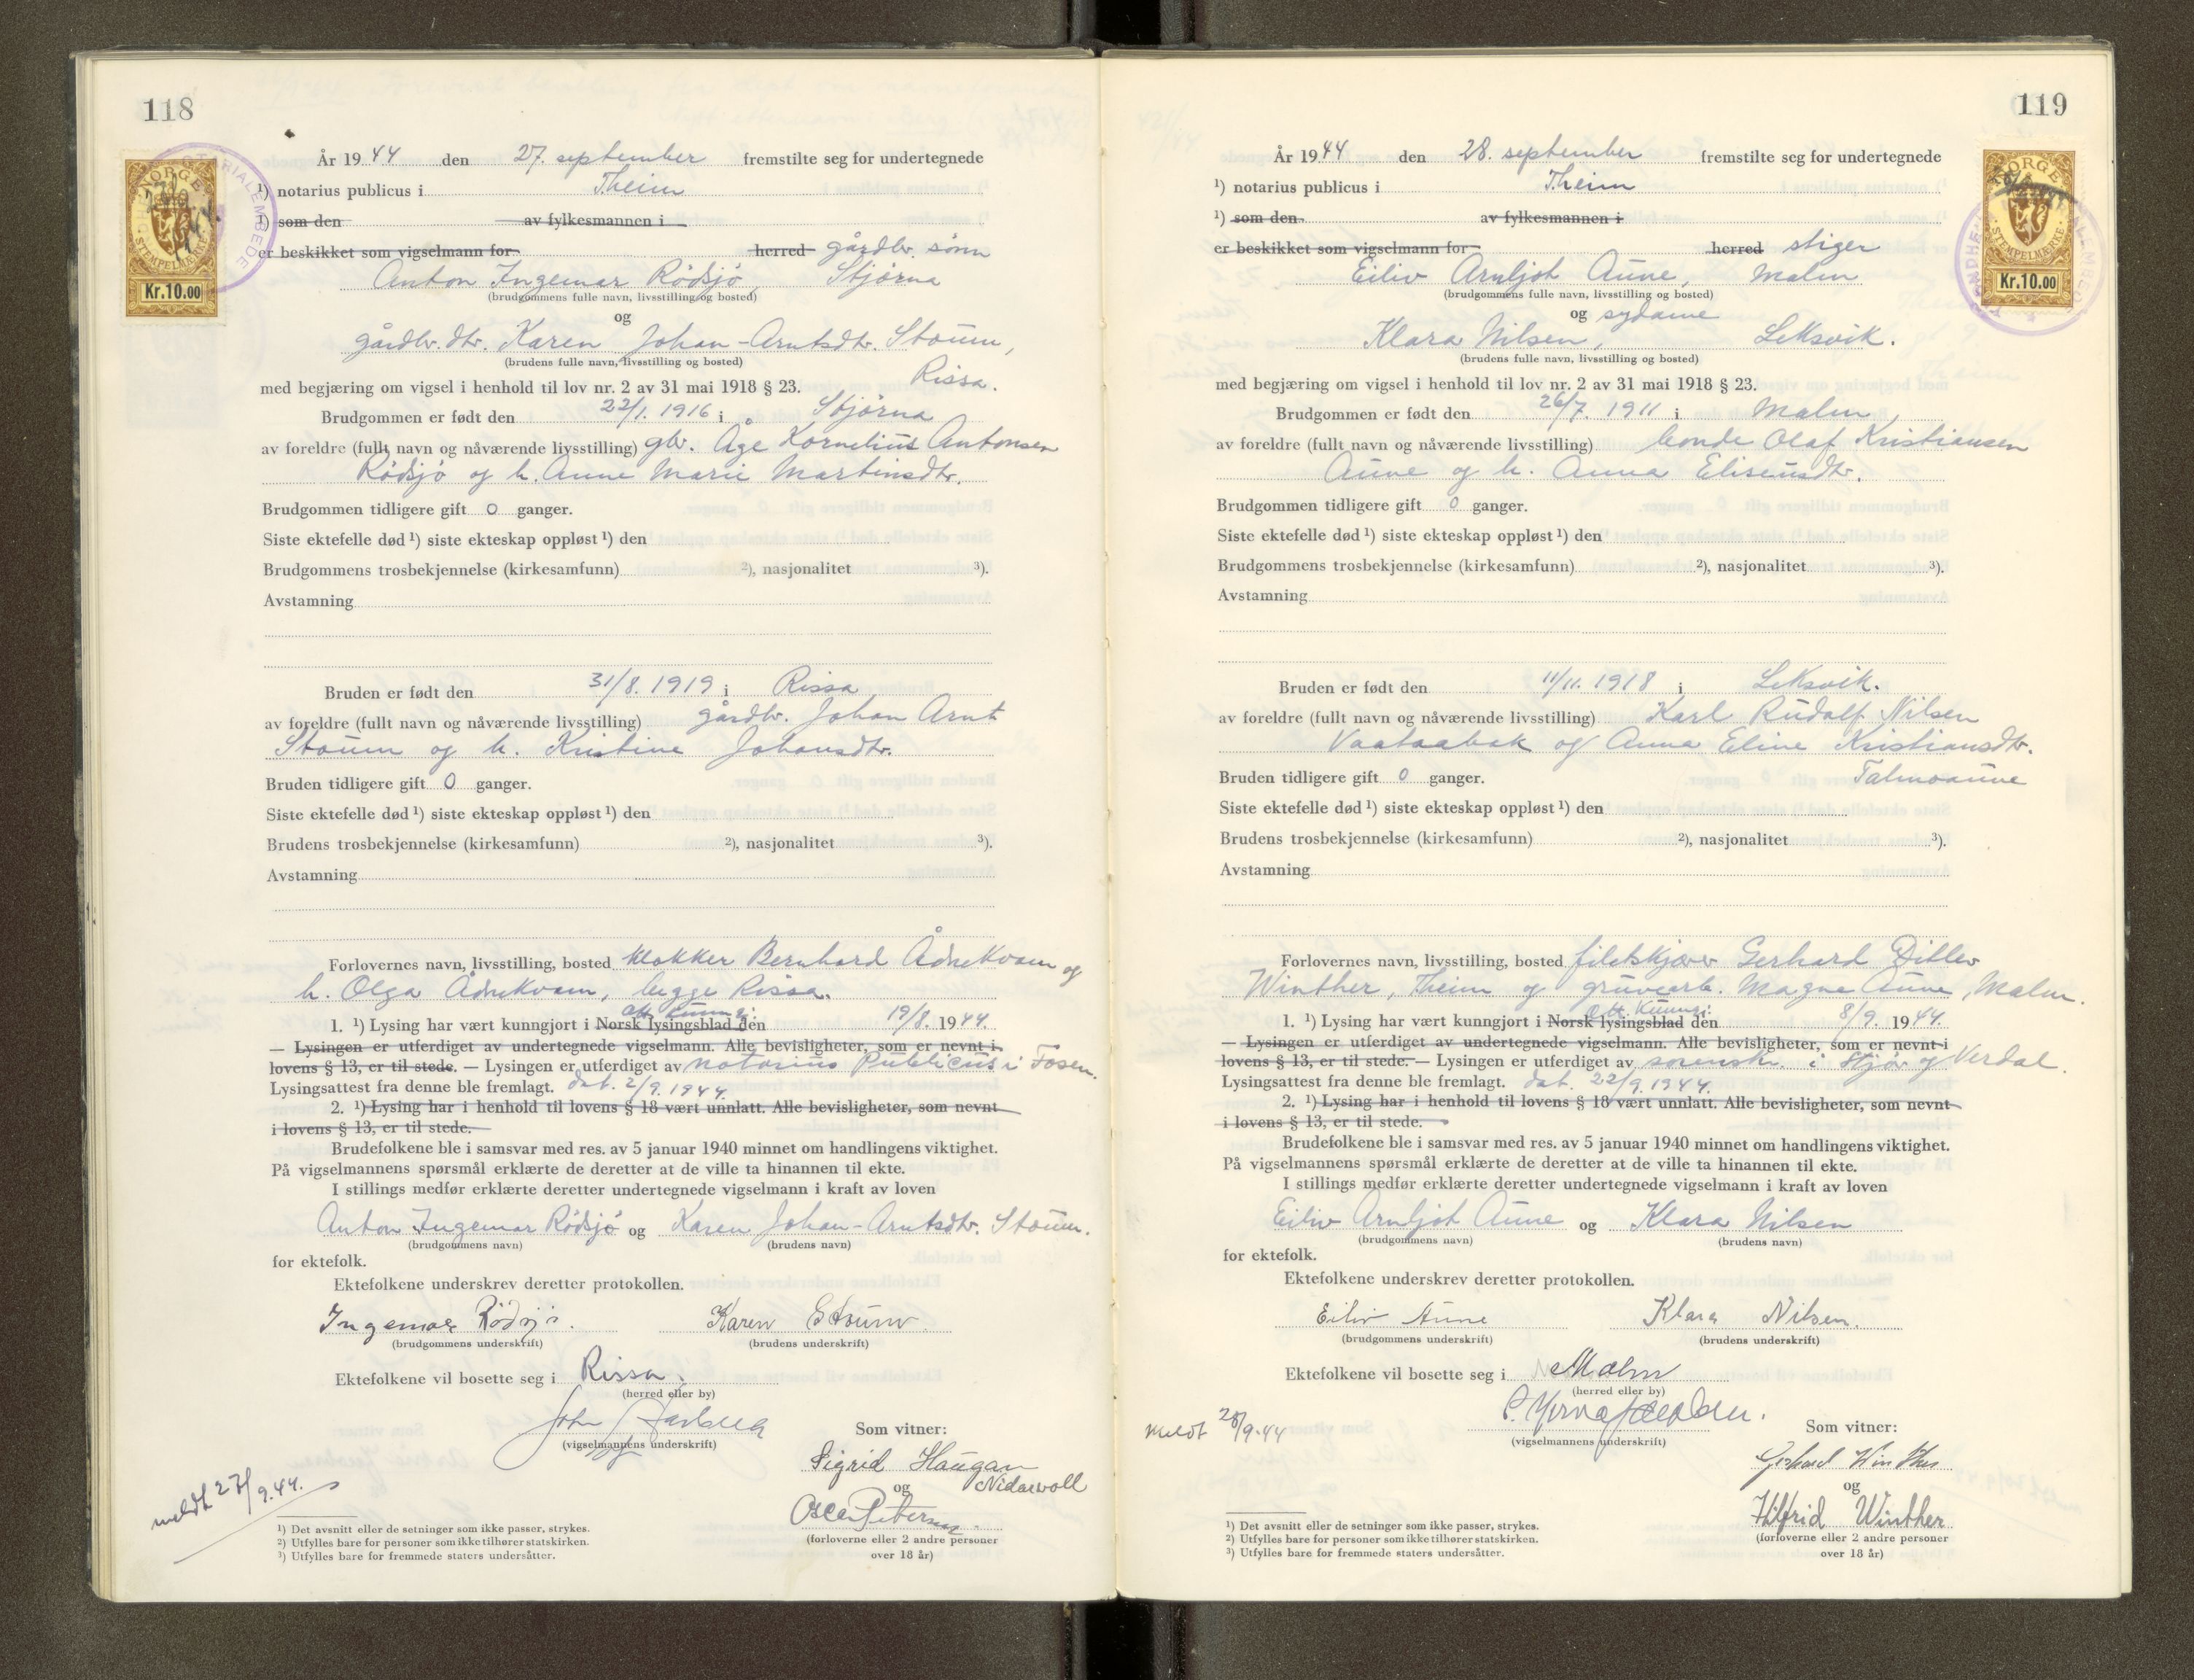 118
NORGE
STEMPELMERKE
Kr.10.00
År 1944 den 27. september fremstilte seg for undertegnede
¹) notarius publicus i Theim
¹) som den av fylkesmannen i
er beskikket som vigselmann for herred gårdbr. sönn
Anton Ingemar Rödsjö, Stjörna
(brudgommens fulle navn, livsstilling og bosted)
og
gårdbr. dtr. Karen Johan-Arntsdtr. Stoum,
(brudens fulle navn, livsstilling og bosted)
Rissa.
med begjæring om vigsel i henhold til lov nr. 2 av 31 mai 1918 § 23.
Brudgommen er født den 22/1. 1916 i Stjörna
av foreldre (fullt navn og nåværende livsstilling) gbr. Åge Kornelius Antonsen
Rödsjö og h. Anne Marie Martinsdtr.
Brudgommen tidligere gift 0 ganger.
Siste ektefelle død ¹) siste ekteskap oppløst ¹) den
Brudgommens trosbekjennelse (kirkesamfunn) ²), nasjonalitet ³).
Avstamning
Bruden er født den 31/8. 1919 i Rissa
av foreldre (fullt navn og nåværende livsstilling) gårdbr. Johan Arnt
Stoum og h. Kristine Johansdtr.
Bruden tidligere gift 0 ganger.
Siste ektefelle død ¹) siste ekteskap oppløst ¹) den
Brudens trosbekjennelse (kirkesamfunn) ²), nasjonalitet ³).
Avstamning
Forlovernes navn, livsstilling, bosted klokker Bernhard Ådnekvam og
h. Olga Ådnekvam, begge Rissa.
off. kunngj.
1. ¹) Lysing har vært kunngjort i Norsk lysingsblad den 19/8. 1944.
— Lysingen er utferdiget av undertegnede vigselmann. Alle bevisligheter, som er nevnt i
lovens § 13, er til stede. — Lysingen er utferdiget av notarius Publicus i Fosen.
Lysingsattest fra denne ble fremlagt. dat. 2/9. 1944.
2. ¹) Lysing har i henhold til lovens § 18 vært unnlatt. Alle bevisligheter, som nevnt
i lovens § 13, er til stede.
Brudefolkene ble i samsvar med res. av 5 januar 1940 minnet om handlingens viktighet.
På vigselmannens spørsmål erklærte de deretter at de ville ta hinannen til ekte.
I stillings medfør erklærte deretter undertegnede vigselmann i kraft av loven
Anton Ingemar Rödsjö og Karen Johan-Arntsdtr. Stoum.
(brudgommens navn) (brudens navn)
for ektefolk.
Ektefolkene underskrev deretter protokollen.
Ingemar Rödsjö. Karen Stoum
(brudgommens underskrift) (brudens underskrift)
Ektefolkene vil bosette seg i Rissa.
(herred eller by)
John
(vigselmannens underskrift)
Som vitner:
Sigrid Haugan
og Nidarvoll
Oscar Petersen
(forloverne eller 2 andre personer
over 18 år)
meldt 27/9.44.
¹) Det avsnitt eller de setninger som ikke passer, strykes.
²) Utfylles bare for personer som ikke tilhører statskirken.
³) Utfylles bare for fremmede staters undersåtter.
119
NORGE
STEMPELMERKE
Kr.10.00
År 1944 den 28. september fremstilte seg for undertegnede
¹) notarius publicus i Theim
¹) som den av fylkesmannen i
er beskikket som vigselmann for herred stiger
Eiliv Arnljot Aune, Malm
(brudgommens fulle navn, livsstilling og bosted)
og sydame
Klara Nilsen, Leksvik.
(brudens fulle navn, livsstilling og bosted)
med begjæring om vigsel i henhold til lov nr. 2 av 31 mai 1918 § 23.
Brudgommen er født den 26/7. 1911 i Malm,
av foreldre (fullt navn og nåværende livsstilling) bonde Olaf Kristiansen
Aune og h. Anna Eliseusdtr.
Brudgommen tidligere gift 0 ganger.
Siste ektefelle død ¹) siste ekteskap oppløst ¹) den
Brudgommens trosbekjennelse (kirkesamfunn) ²), nasjonalitet ³).
Avstamning
Bruden er født den 11/11. 1918 i Leksvik.
av foreldre (fullt navn og nåværende livsstilling) Karl Rudolf Nilsen
Vaataabak og Anna Eline Kristiansdtr.
Talmoaune
Bruden tidligere gift 0 ganger.
Siste ektefelle død ¹) siste ekteskap oppløst ¹) den
Brudens trosbekjennelse (kirkesamfunn) ²), nasjonalitet ³).
Avstamning
Forlovernes navn, livsstilling, bosted filetskjærer Gerhard Ditlev
Winther, Theim og gruvearb. Magne Aune, Malm.
off. kunngj.
1. ¹) Lysing har vært kunngjort i Norsk lysingsblad den 8/9. 1944.
— Lysingen er utferdiget av undertegnede vigselmann. Alle bevisligheter, som er nevnt i
lovens § 13, er til stede. — Lysingen er utferdiget av sorenskr. i Stjör og Verdal.
Lysingsattest fra denne ble fremlagt. dat. 22/9. 1944.
2. ¹) Lysing har i henhold til lovens § 18 vært unnlatt. Alle bevisligheter, som nevnt
i lovens § 13, er til stede.
Brudefolkene ble i samsvar med res. av 5 januar 1940 minnet om handlingens viktighet.
På vigselmannens spørsmål erklærte de deretter at de ville ta hinannen til ekte.
I stillings medfør erklærte deretter undertegnede vigselmann i kraft av loven
Eiliv Arnljot Aune og Klara Nilsen
(brudgommens navn) (brudens navn)
for ektefolk.
Ektefolkene underskrev deretter protokollen.
Eiliv Aune Klara Nilsen.
(brudgommens underskrift) (brudens underskrift)
Ektefolkene vil bosette seg i Malm
(herred eller by)
(vigselmannens underskrift)
Som vitner:
Gerhard Winther
og
Hilfrid Winther
(forloverne eller 2 andre personer
over 18 år)
meldt 28/9.44
¹) Det avsnitt eller de setninger som ikke passer, strykes.
²) Utfylles bare for personer som ikke tilhører statskirken.
³) Utfylles bare for fremmede staters undersåtter.